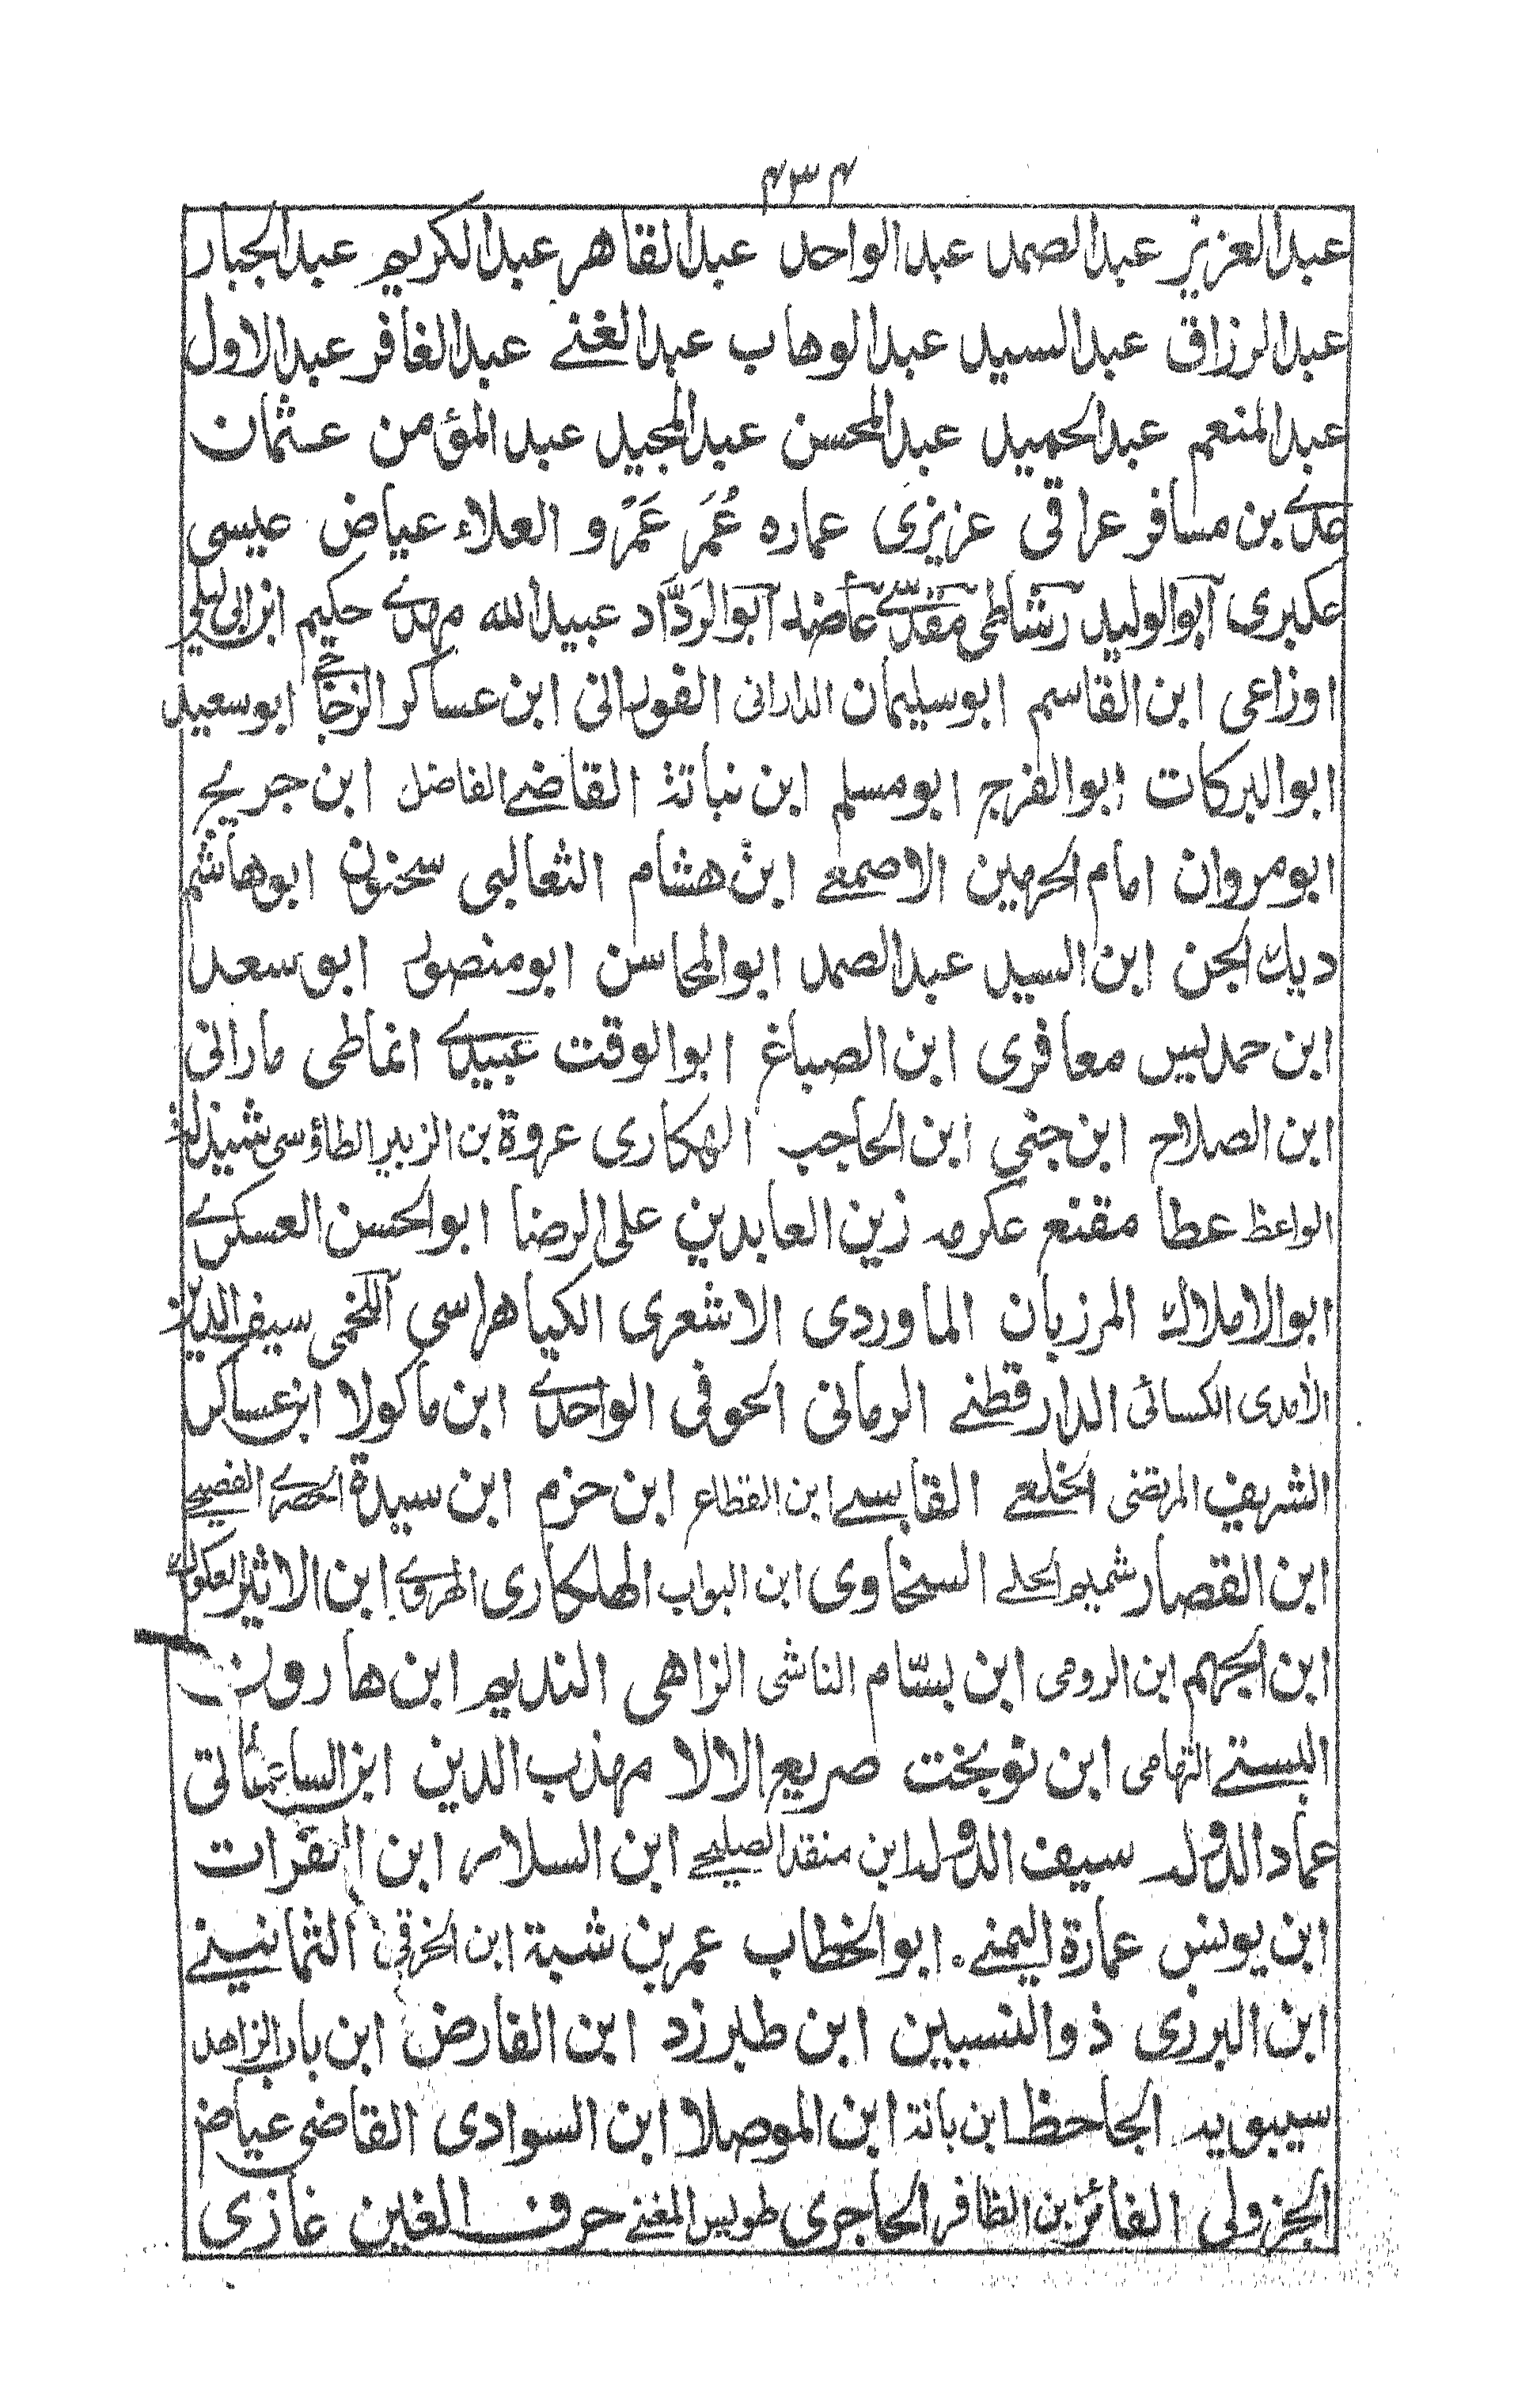 ۴۳۴
عبدالعزیز عبدالصمد عبدالواحد عبدالقاهر عبدالکریم عبدالجبار
عبدالرزاق عبدالسید عبدالوهاب عبدالغنے عبدالغافر عبدالاول
عبدالمنعم عبدالحمید عبدالمحسن عبدالمجید عبدالمؤمن عثمان
عدے بن مسافر عراقی عزیزی عماره عُمَر عَمْرو العلاء عیاض عیسی
عکبری ابوالولید رشاطی مقدسے عاضد ابوالردَّاد عبیدالله مهدے حکیم ابن ابی لیلی
اوزاعی ابن القاسم ابوسلیمان الدارانی الفورانی ابن عساکر الزجاجے ابوسعید
ابوالبرکات ابوالفرج ابومسلم ابن نباتة القاضے الفاضل ابن جریج
ابومروان امام الحرمین الاصمعے ابن هشام الثعالبی سحنون ابوهاشم
دیك الجن ابن السید عبدالصمد ابوالمحاسن ابومنصور ابوسعد
ابن حمدیس معافری ابن الصباغ ابوالوقت عبیدے انماطی مارانی
ابن الصلاح ابن جنی ابن الحاجب الهکاری عروة بن الزبیر الطاؤسی شیذلة
الواعظ عطا مقنع عکرمه زین العابدین علی الرضا ابوالحسن العسکرے
ابوالاملاك المرزبان الماوردی الاشعری الکیاهراسی اللخمی سیف الدین
الامدی الکسائی الدارقطنے الرمانی الحوفی الواحدے ابن ماکولا ابن عساکر
الشریف المرتضی الخلعے القابسے ابن القطاع ابن حزم ابن سیدة الحصرے الفصیحے
ابن القصار شمیم الحلے السخاوی ابن البواب الهلکاری الهروے ابن الاثیر العکوك
ابن الجهم ابن الرومی ابن بسّام الناشی الزاهی الندیم ابن هارون
البستے التهامی ابن نوبخت صریع الالا مهذب الدین ابن الساعاتی
عماد الدوله سیف الدوله ابن منقد الصلیحے ابن السلار ابن الفرات
ابن یونس عمارة الیمنے ابوالخطاب عمر بن شبة ابن الخرقی الثمانینے
ابن البرزی ذوالنسبین ابن طبرزد ابن الفارض ابن باب الزاهد
سیبویه الجاحظ ابن بانة ابن الموصلا ابن السوادی القاضی عیاض
الجزولی الفائز بن الظافر الحاجری طویس المغنے حرف الغین غازی